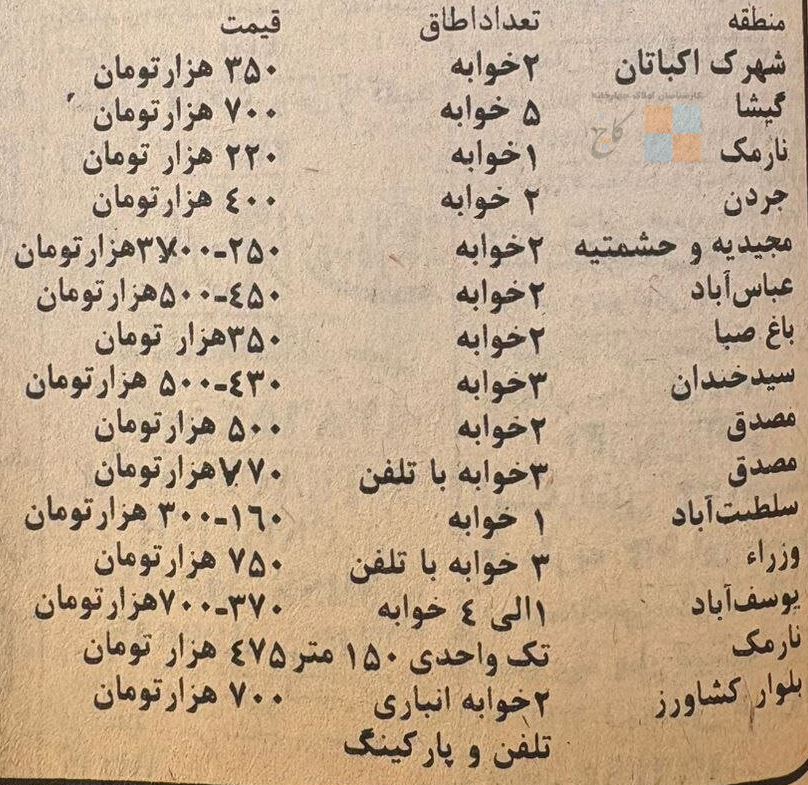 منطقه تعداداطاق قیمت
شهرک اکباتان ۲خوابه ۳۵۰ هزارتومان
کارشناسان املاک چهارخانه
گیشا ۵ خوابه ۷۰۰ هزارتومان
کاج
نارمک ۱خوابه ۲۲۰ هزار تومان
جردن ۲ خوابه ۴۰۰ هزارتومان
مجیدیه و حشمتیه ۲خوابه ۲۵۰-۳۷۰۰هزارتومان
عباس‌آباد ۲خوابه ۴۵۰-۵۰۰هزارتومان
باغ صبا ۲خوابه ۳۵۰هزار تومان
سیدخندان ۳خوابه ۴۳۰-۵۰۰ هزارتومان
مصدق ۲خوابه ۵۰۰ هزارتومان
مصدق ۳خوابه با تلفن ۷۷۰هزارتومان
سلطنت‌آباد ۱ خوابه ۱۶۰-۳۰۰ هزارتومان
وزراء ۳ خوابه با تلفن ۷۵۰ هزارتومان
یوسف‌آباد ۱الی ۴ خوابه ۳۷۰-۷۰۰هزارتومان
نارمک تک واحدی ۱۵۰ متر ۴۷۵ هزار تومان
بلوار کشاورز ۲خوابه انباری ۷۰۰ هزارتومان
تلفن و پارکینگ